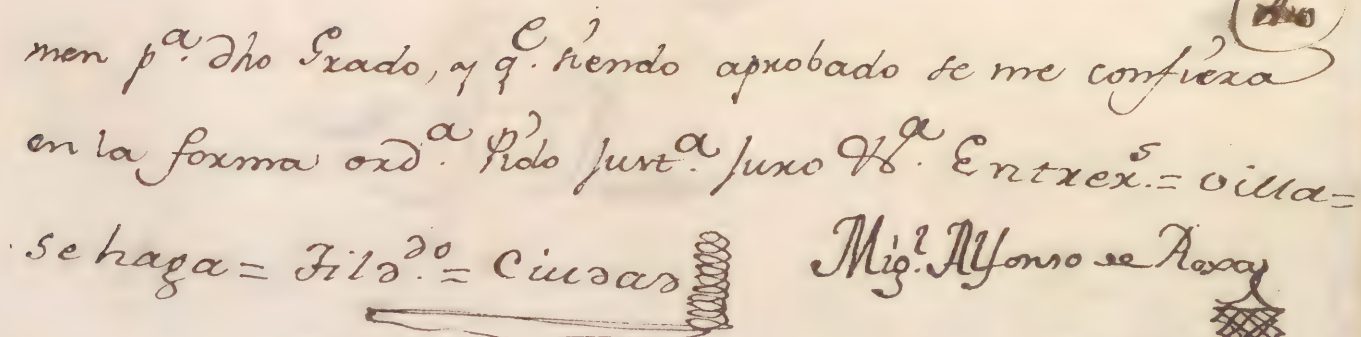 men p.ª dho Grado, y q.e siendo aprobado se me confiera
en la forma ord.ª Pido Just.ª Juro &.ª Entrer.s = villa =
se haga = Tild.do = Ciudad
Mig.l Alfonso de Roxas